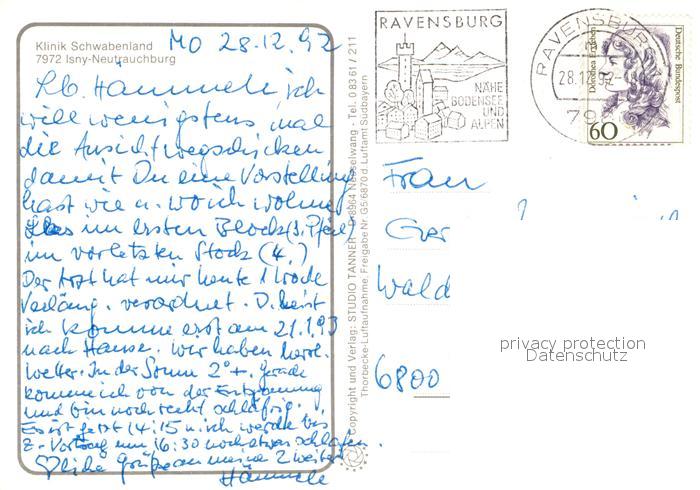 Klinik Schwabenland
7972 Isny-Neutrauchburg
Mo 28.12.92
Lb. Hämmele ich
will wenigstens mal
die Ansicht wegschicken
damit Du eine Vorstellung
hast wie u. wo ich wohne
im ersten Block (3. Pfeil)
im vorletzten Stock (4.)
Der Arzt hat mir heute 1 Woche
Verläng. verordnet. D. heist
ich komme erst am 21.1.93
nach Hause. Wir haben herrl.
Wetter. In der Sonne 2°+. Gerade
komme ich von der Entspannung
und bin noch recht schläfrig.
Es ist jetzt 14:15 u. ich werde bis
z. Vortrag um 16:30 noch etwas schlafen.
♡liche Grüße an meine 2 weiter
Hämmele
Copyright und Verlag: STUDIO TANNER · 8964 Nesselwang - Tel. 0 83 61 / 211
Thorbecke-Luftaufnahme. Freigabe Nr. G5/6870 d. Luftamt Südbayern
RAVENSBURG
NÄHE
BODENSEE
UND
ALPEN
RAVENSBURG
28.12.92
79
Deutsche Bundespost
Dorothea Erxleben
60
Frau
Ger
Wald
6800
privacy protection
Datenschutz